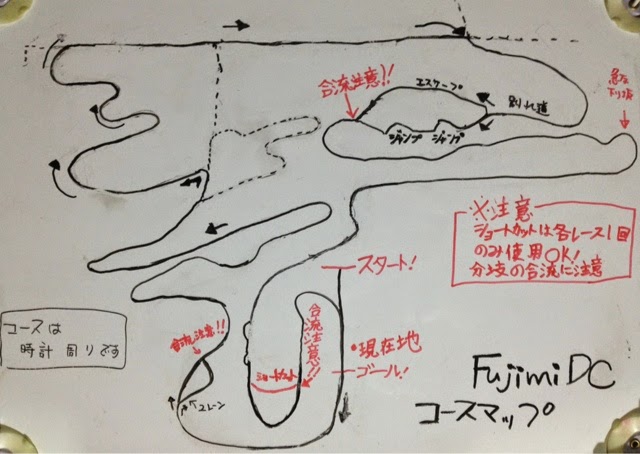 合流注意!!
エスケープ
別れ道
急な
下り坂
ジャンプ ジャンプ
※注意
ショートカットは各レース1回
のみ使用OK!
分岐の合流に注意
スタート!
コースは
時計周りです
合流注意!!
合流注意!!
・現在地
ショートカット
ゴール!
2レーン
Fujimi DC
コースマップ